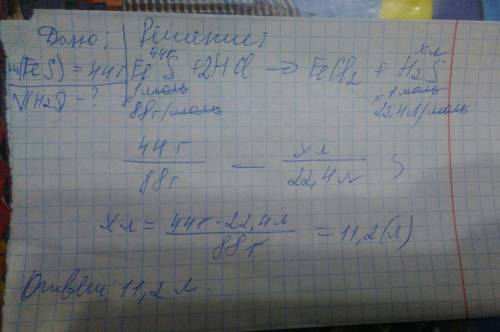 Дано: Решение:
44г хл
m(FeS) = 44г FeS + 2HCl → FeCl2 + H2S
V(H2S) - ? 1 моль 1 моль
88 г/моль 22,4 л/моль
44г — хл
88г 22,4л
хл = 44г · 22,4л = 11,2 (л)
88г
Ответ: 11,2 л.